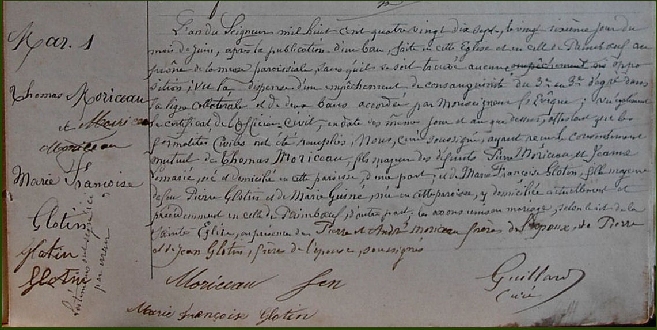 Mar. 1
Thomas Moriceau
et
Moriceau
Marie Françoise
Glotin
Glotin
Glotin
L'an du Seigneur mil huit cent quatre vingt dix sept, le vingt sixième jour du
mois de juin, après la publication d'un ban, faite en cette Eglise et en celle de
prône de la messe paroissial, sans qu'il se soit trouvé aucun empêchement ou oppo
sition; vu la dispense d'un empêchement de consanguinité du 3me au 3me degré dans
la ligne collatérale et de deux bans accordée par Monseigneur l'Evêque; vu également
le certificat de l'officier Civil, en date du même jour et an que dessus, attestant que les
formalités civiles ont été remplies, Nous, Curé soussigné, ayant reçu le consentement
mutuel de Thomas Moriceau, fils majeur des défunts Pierre Moriceau et Jeanne
né et domicilié en cette paroisse, d'une part; et de Marie Françoise Glotin, fille majeure
de feu Pierre Glotin et de Marie née en cette paroisse, y domiciliée actuellement et
précédemment en celle de d'autre part; les avons unis en mariage, selon le rit de la
Sainte Eglise, en présence de Pierre et André Moriceau frères de l'époux, de Pierre
et de Jean Glotin, frères de l'épouse, soussignés
Moriceau
Guillard
Curé
Marie françoise Glotin